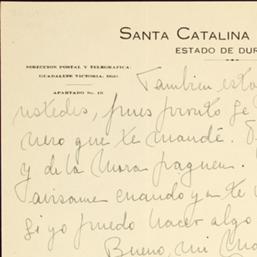 SANTA CATALINA
ESTADO DE DUR
DIRECCION POSTAL Y TELEGRAFICA:
GUADALUPE VICTORIA, DGO.
APARTADO No. 12.
Tambien esto
ustedes, pues pronto se
nero que te mandé.
y de la Mora paguen.
avisame cuando ya te
si yo puedo hacer algo
Bueno, mi